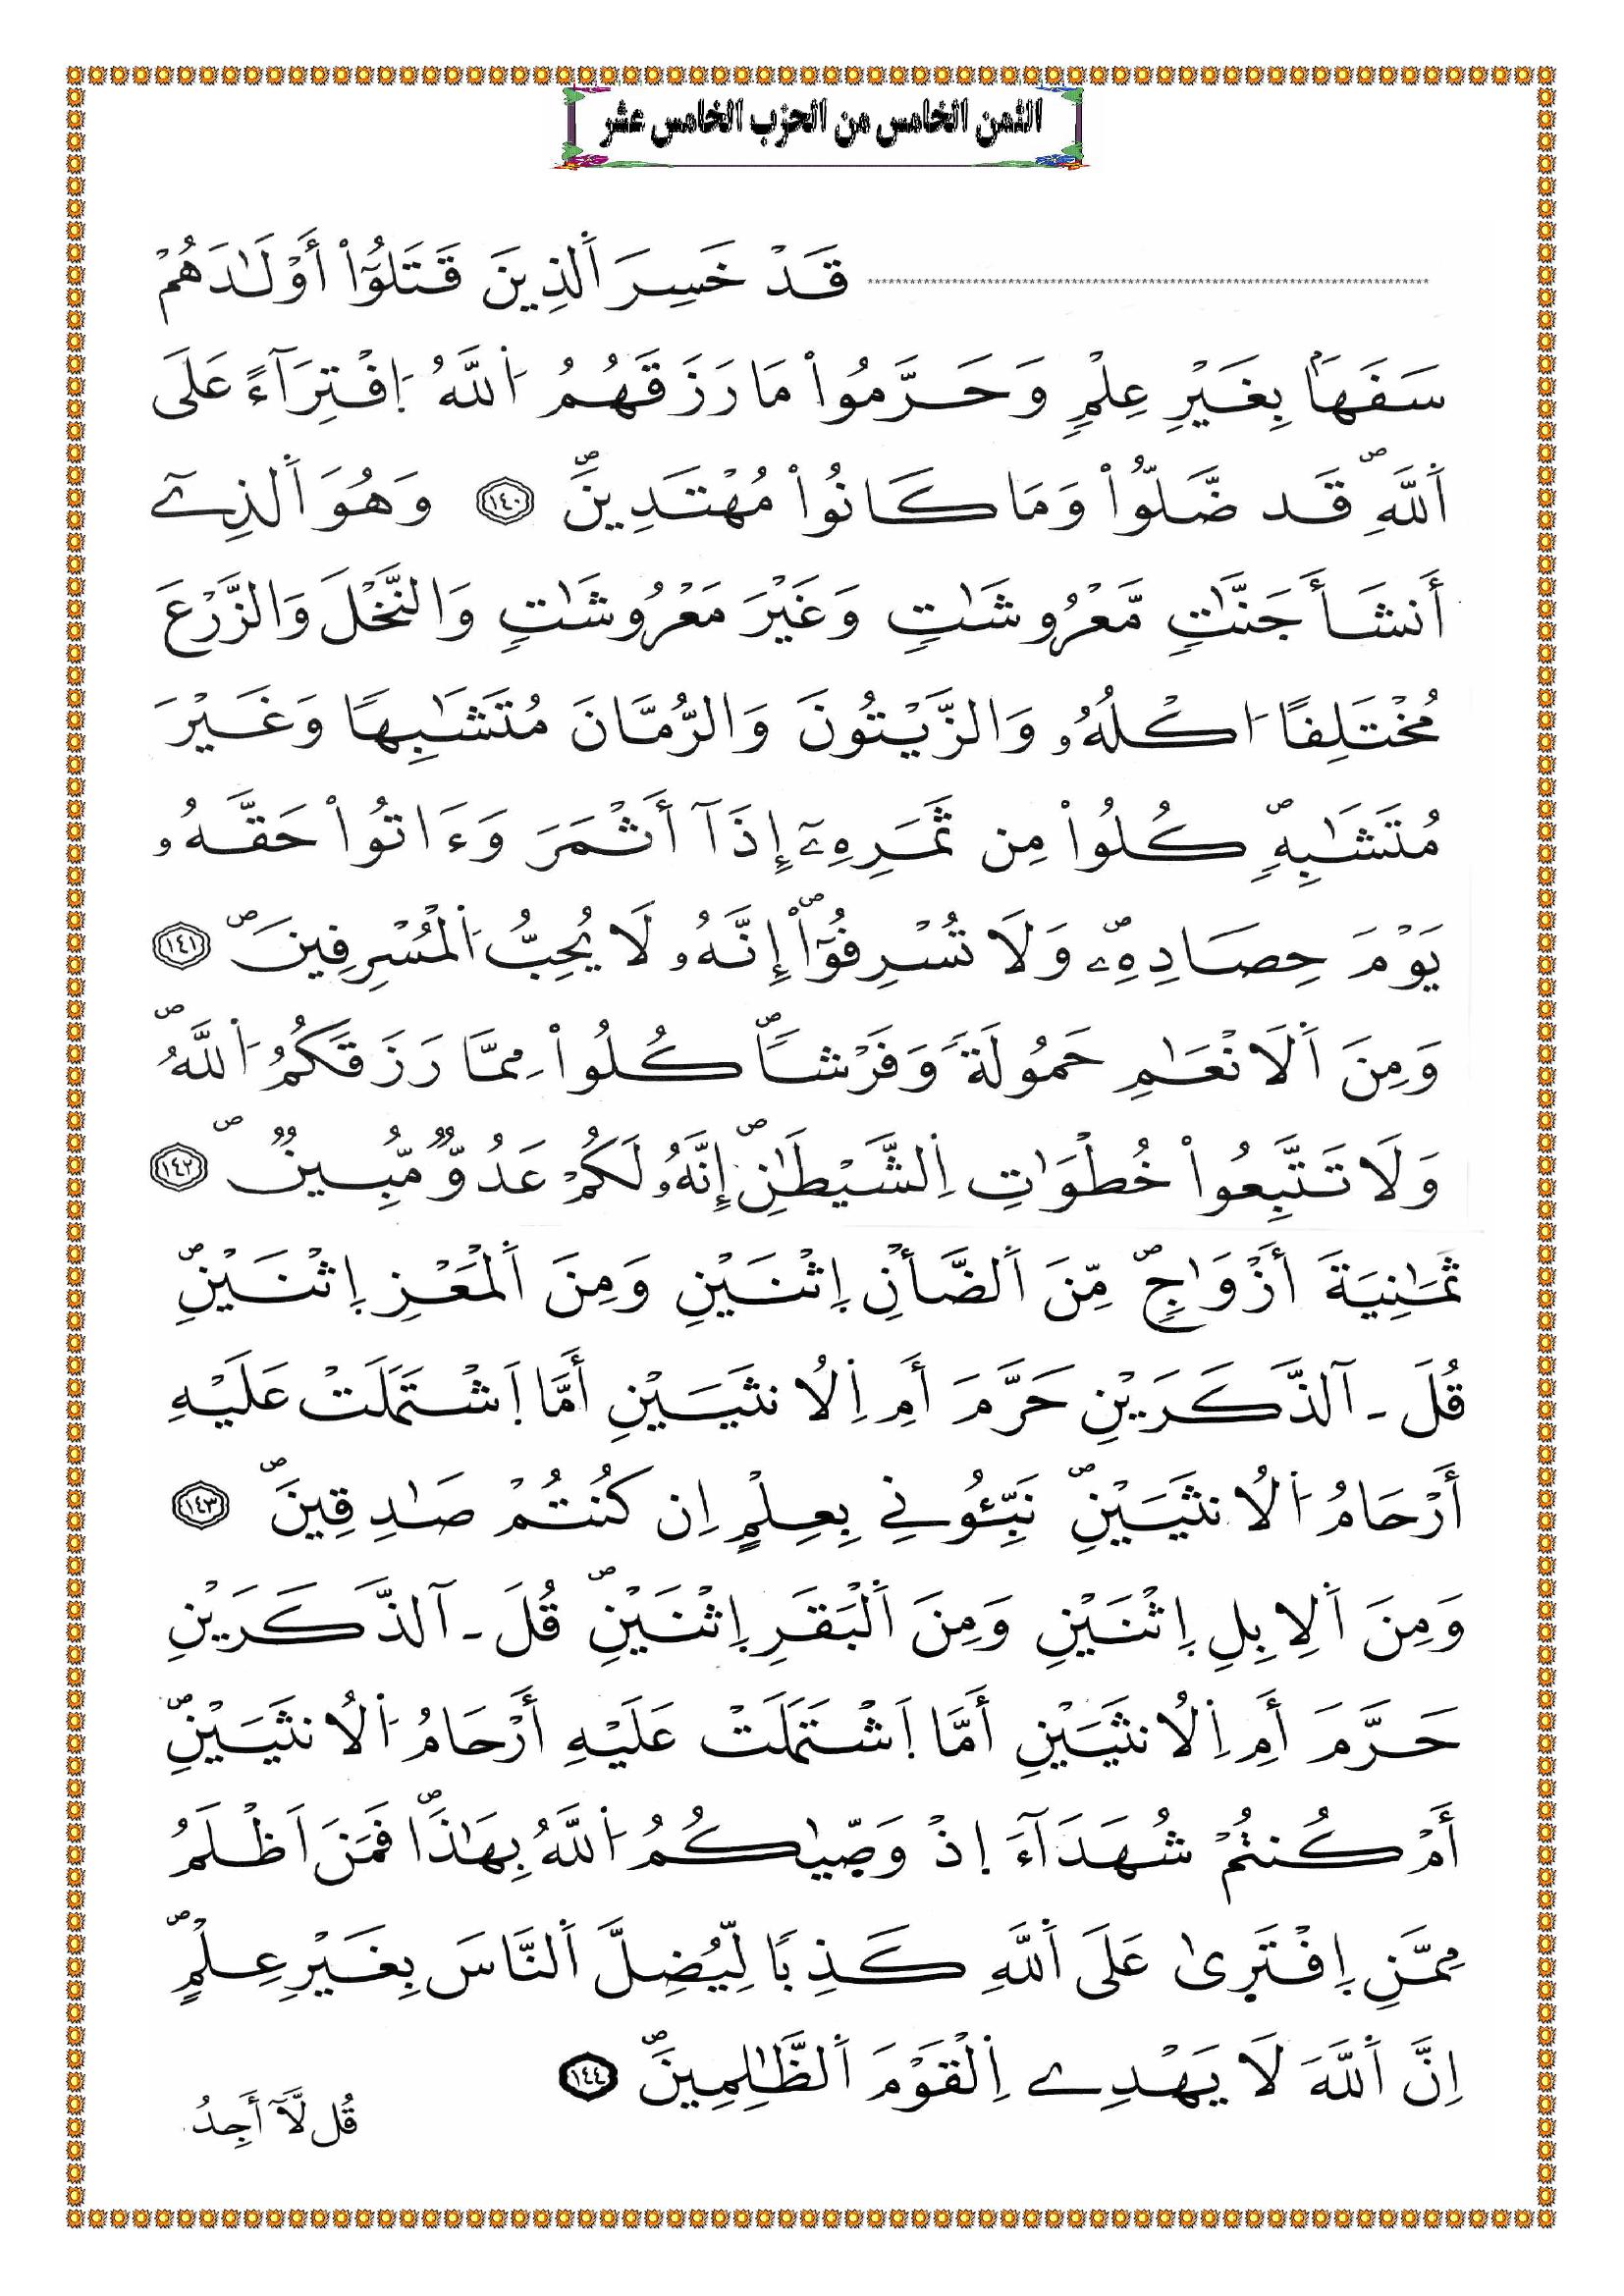 الثمن الخامس من الحزب الخامس عشر
قَدْ خَسِرَ اَ۬لذِينَ قَتَلُوٓاْ أَوْلَٰدَهُمْ
سَفَهَاَۢ بِغَيْرِ عِلْمٖ وَحَرَّمُواْ مَا رَزَقَهُمُ اُ۬للَّهُ اُ۪فْتِرَآءً عَلَى
اَ۬للَّهِۖ قَد ضَّلُّواْ وَمَا كَانُواْ مُهْتَدِينَۖ ١٤٠ وَهُوَ اَ۬لذِےٓ
أَنشَأَ جَنَّٰتٖ مَّعْرُوشَٰتٖ وَغَيْرَ مَعْرُوشَٰتٖ وَالنَّخْلَ وَالزَّرْعَ
مُخْتَلِفًا اُكْلُهُۥ وَالزَّيْتُونَ وَالرُّمَّانَ مُتَشَٰبِهٗا وَغَيْرَ
مُتَشَٰبِهٖۖ كُلُواْ مِن ثَمَرِهِۦٓ إِذَآ أَثْمَرَ وَءَاتُواْ حَقَّهُۥ
يَوْمَ حِصَادِهِۦۖ وَلَا تُسْرِفُوٓاْۖ إِنَّهُۥ لَا يُحِبُّ اُ۬لْمُسْرِفِينَۖ ١٤١
وَمِنَ اَ۬لَانْعَٰمِ حَمُولَةٗ وَفَرْشٗاۖ كُلُواْ مِمَّا رَزَقَكُمُ اُ۬للَّهُۖ
وَلَا تَتَّبِعُواْ خُطْوَٰتِ اِ۬لشَّيْطَٰنِۖ إِنَّهُۥ لَكُمْ عَدُوّٞ مُّبِينٞۖ ١٤٢
ثَمَٰنِيَةَ أَزْوَٰجٖۖ مِّنَ اَ۬لضَّأْنِ اِ۪ثْنَيْنِ وَمِنَ اَ۬لْمَعْزِ اِ۪ثْنَيْنِۖ
قُلَ ـ آلذَّكَرَيْنِ حَرَّمَ أَمِ اِ۬لُانثَيَيْنِ أَمَّا اَ۪شْتَمَلَتْ عَلَيْهِ
أَرْحَامُ اُ۬لُانثَيَيْنِۖ نَبِّـُٔونِے بِعِلْمٍ اِن كُنتُمْ صَٰدِقِينَۖ ١٤٣
وَمِنَ اَ۬لِابِلِ اِ۪ثْنَيْنِ وَمِنَ اَ۬لْبَقَرِ اِ۪ثْنَيْنِۖ قُلَ ـ آلذَّكَرَيْنِ
حَرَّمَ أَمِ اِ۬لُانثَيَيْنِ أَمَّا اَ۪شْتَمَلَتْ عَلَيْهِ أَرْحَامُ اُ۬لُانثَيَيْنِۖ
أَمْ كُنتُمْ شُهَدَآءَ اِ۪ذْ وَصّ۪يٰكُمُ اُ۬للَّهُ بِهَٰذَاۖ فَمَنَ اَظْلَمُ
مِمَّنِ اِ۪فْتَر۪يٰ عَلَى اَ۬للَّهِ كَذِبٗا لِّيُضِلَّ اَ۬لنَّاسَ بِغَيْرِ عِلْمٍۖ
اِنَّ اَ۬للَّهَ لَا يَهْدِے اِ۬لْقَوْمَ اَ۬لظَّٰلِمِينَۖ ١٤٤
قُل لَّآ أَجِدُ